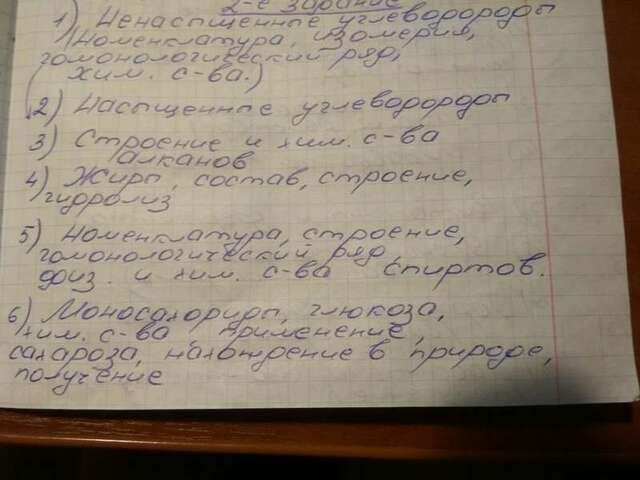 2-е задание
1) Ненасыщенные углеводороды
Номенклатура, изомерия,
гомонологический ряд,
(хим. с-ва.)
2) Насыщенные углеводороды
3) Строение и хим. с-ва
алканов
4) Жиры, состав, строение,
гидролиз
5) Номенклатура, строение,
гомонологический ряд,
физ. и хим. с-ва спиртов.
6) Моносахориды, глюкоза,
хим. с-ва, применение,
сахароза, нахождение в природе,
получение